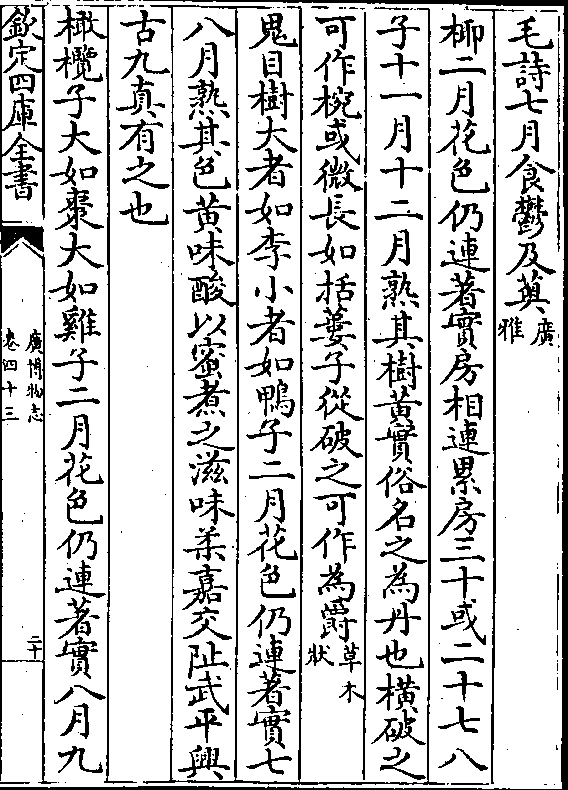 毛詩七月食鬱及薁廣雅
栁二月花色仍連著實房相連累房三十或二十七八
子十一月十二月熟其樹黃實俗名之為丹也橫破之
可作椀或微長如括蔞子從破之可作為爵草木狀
鬼目樹大者如李小者如鴨子二月花色仍連著實七
八月熟其色黃味酸以蜜煮之滋味柔嘉交阯武平興
古九真有之也
橄欖子大如棗大如雞子二月花色仍連著實八月九
欽定四庫全書
廣博物志
卷四十三
二十